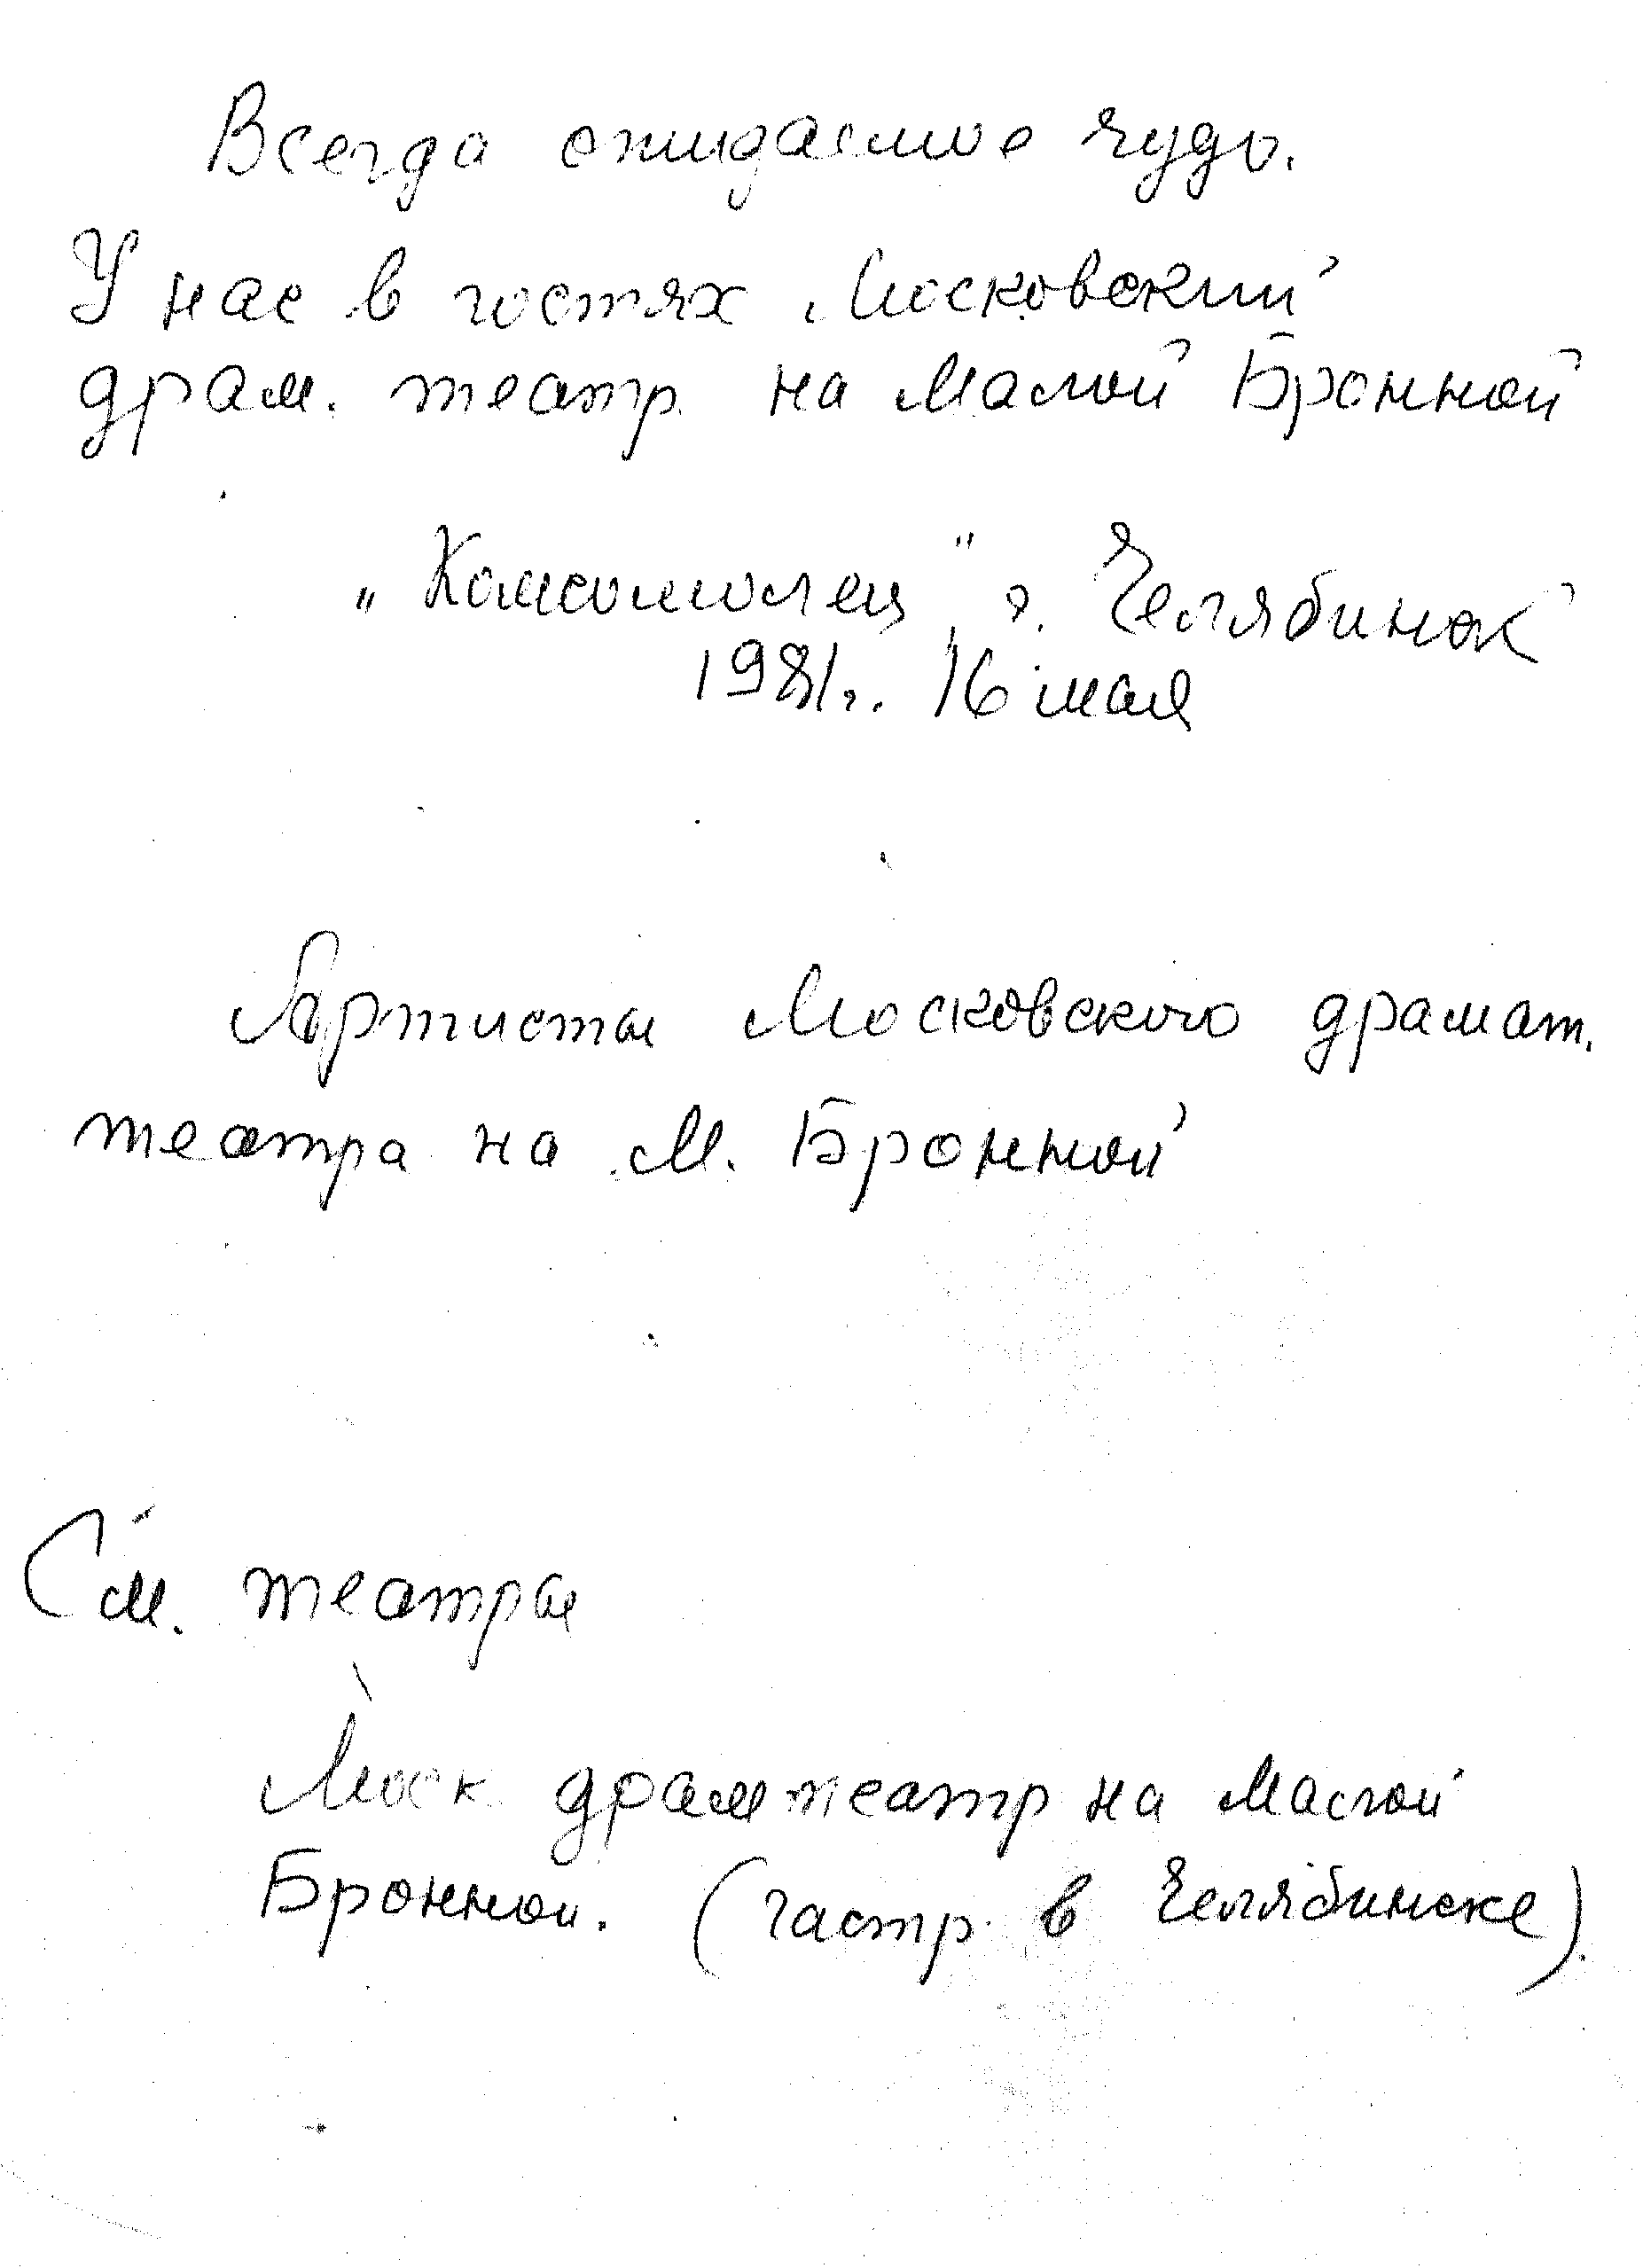 Всегда ожидаемое чудо.
У нас в гостях Московский
драм. театр на Малой Бронной
„Комсомолец" г. Челябинск
1981г. 16 мая
Артисты Московского драмат.
театра на М. Бронной
См. театры
Моск драмтеатр на Малой
Бронной. (гастр. в Челябинске).